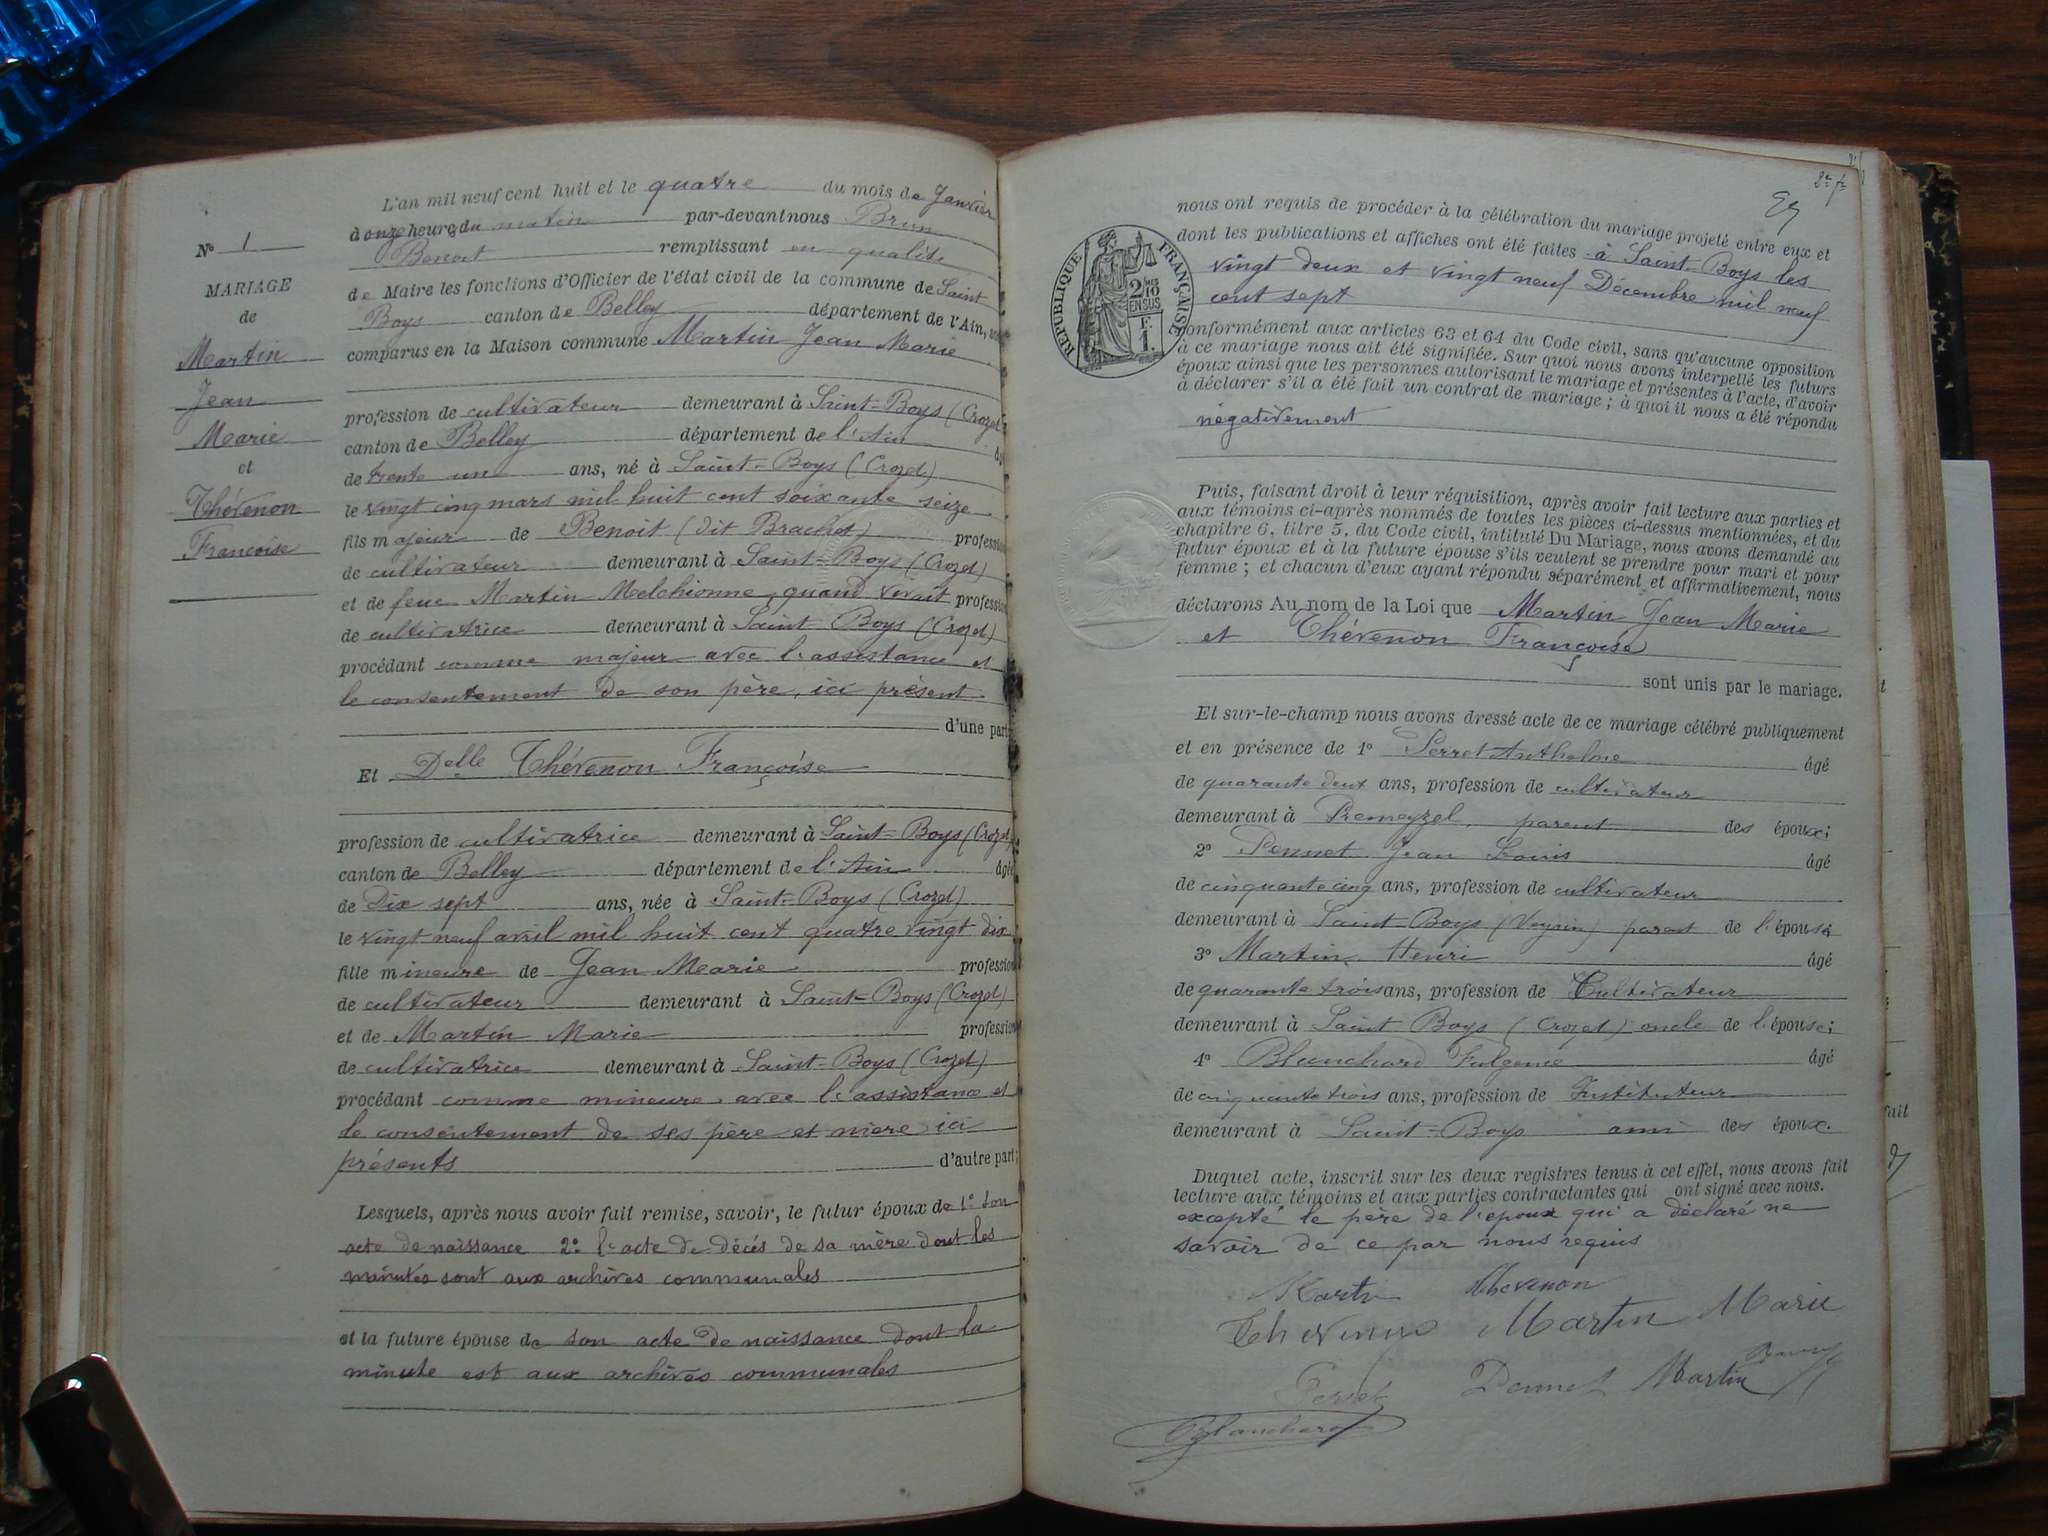 L'an mil neuf cent huit et le quatre du mois de Janvier
à onze heures du matin par-devant nous Brun
Benoit remplissant en qualité
de Maire les fonctions d'Officier de l'état civil de la commune de Saint
Boys canton de Belley département de l'Ain,
comparus en la Maison commune Martin Jean Marie
profession de cultivateur demeurant à Saint-Boys (Crozet)
canton de Belley département de l'Ain âgé
de trente un ans, né à Saint-Boys (Crozet)
le vingt cinq mars mil huit cent soixante seize
fils majeur de Benoit (dit Brachet) profession
de cultivateur demeurant à Saint-Boys (Crozet)
et de feue Martin Melchionne quand vivait profession
de cultivatrice demeurant à Saint Boys (Crozet)
procédant comme majeur avec l'assistance et
le consentement de son père, ici présent
d'une part
Et Delle Thévenon Françoise
profession de cultivatrice demeurant à Saint-Boys (Crozet)
canton de Belley département de l'Ain âgée
de Dix sept ans, née à Saint-Boys (Crozet)
le vingt neuf avril mil huit cent quatre vingt dix
fille mineure de Jean Marie profession
de cultivateur demeurant à Saint-Boys (Crozet)
et de Martin Marie profession
de cultivatrice demeurant à Saint-Boys (Crozet)
procédant comme mineure avec l'assistance et
le consentement de ses père et mère ici
présents d'autre part;
Lesquels, après nous avoir fait remise, savoir, le futur époux de 1° son
acte de naissance 2° l'acte de décés de sa mère dont les
minutes sont aux archives communales
et la future épouse de son acte de naissance dont la
minute est aux archives communales
N° 1
MARIAGE
de
Martin
Jean
Marie
et
Thévenon
Francoise
nous ont requis de procéder à la célébration du mariage projeté entre eux et
dont les publications et affiches ont été faites à Saint-Boys les
vingt deux et vingt neuf Décembre mil neuf
cent sept
conformément aux articles 63 et 64 du Code civil, sans qu'aucune opposition
à ce mariage nous ait été signifiée. Sur quoi nous avons interpellé les futurs
époux ainsi que les personnes autorisant le mariage et présentes à l'acte, d'avoir
à déclarer s'il a été fait un contrat de mariage ; à quoi il nous a été répondu
négativement
Puis, faisant droit à leur réquisition, après avoir fait lecture aux parties et
aux témoins ci-après nommés de toutes les pièces ci-dessus mentionnées, et du
chapitre 6, titre 5, du Code civil, intitulé Du Mariage, nous avons demandé au
futur époux et à la future épouse s'ils veulent se prendre pour mari et pour
femme ; et chacun d'eux ayant répondu séparément et affirmativement, nous
déclarons Au nom de la Loi que Martin Jean Marie
et Thévenon Françoise
sont unis par le mariage.
Et sur-le-champ nous avons dressé acte de ce mariage célébré publiquement
et en présence de 1° Perret Anthelme âgé
de quarante deux ans, profession de cultivateur
demeurant à Premeyzel, parent des époux;
2° Pennet Jean Louis âgé
de cinquante cinq ans, profession de cultivateur
demeurant à Saint-Boys (Veyrin) parent de l'épouse
3° Martin Henri âgé
de quarante trois ans, profession de Cultivateur
demeurant à Saint Boys (Crozet) oncle de l'épouse;
4° Blanchard Fulgence âgé
de cinquante trois ans, profession de Instituteur
demeurant à Saint-Boys ami des époux.
Duquel acte, inscrit sur les deux registres tenus à cet effet, nous avons fait
lecture aux témoins et aux parties contractantes qui ont signé avec nous.
excepté le père de l'époux qui a déclaré ne
savoir de ce par nous requis
Martin Thevenon
Thevenon Martin Marie
Perret Pennet Martin
Blanchard
RÉPUBLIQUE FRANÇAISE
2/10
EN SUS
F.
1.
fait